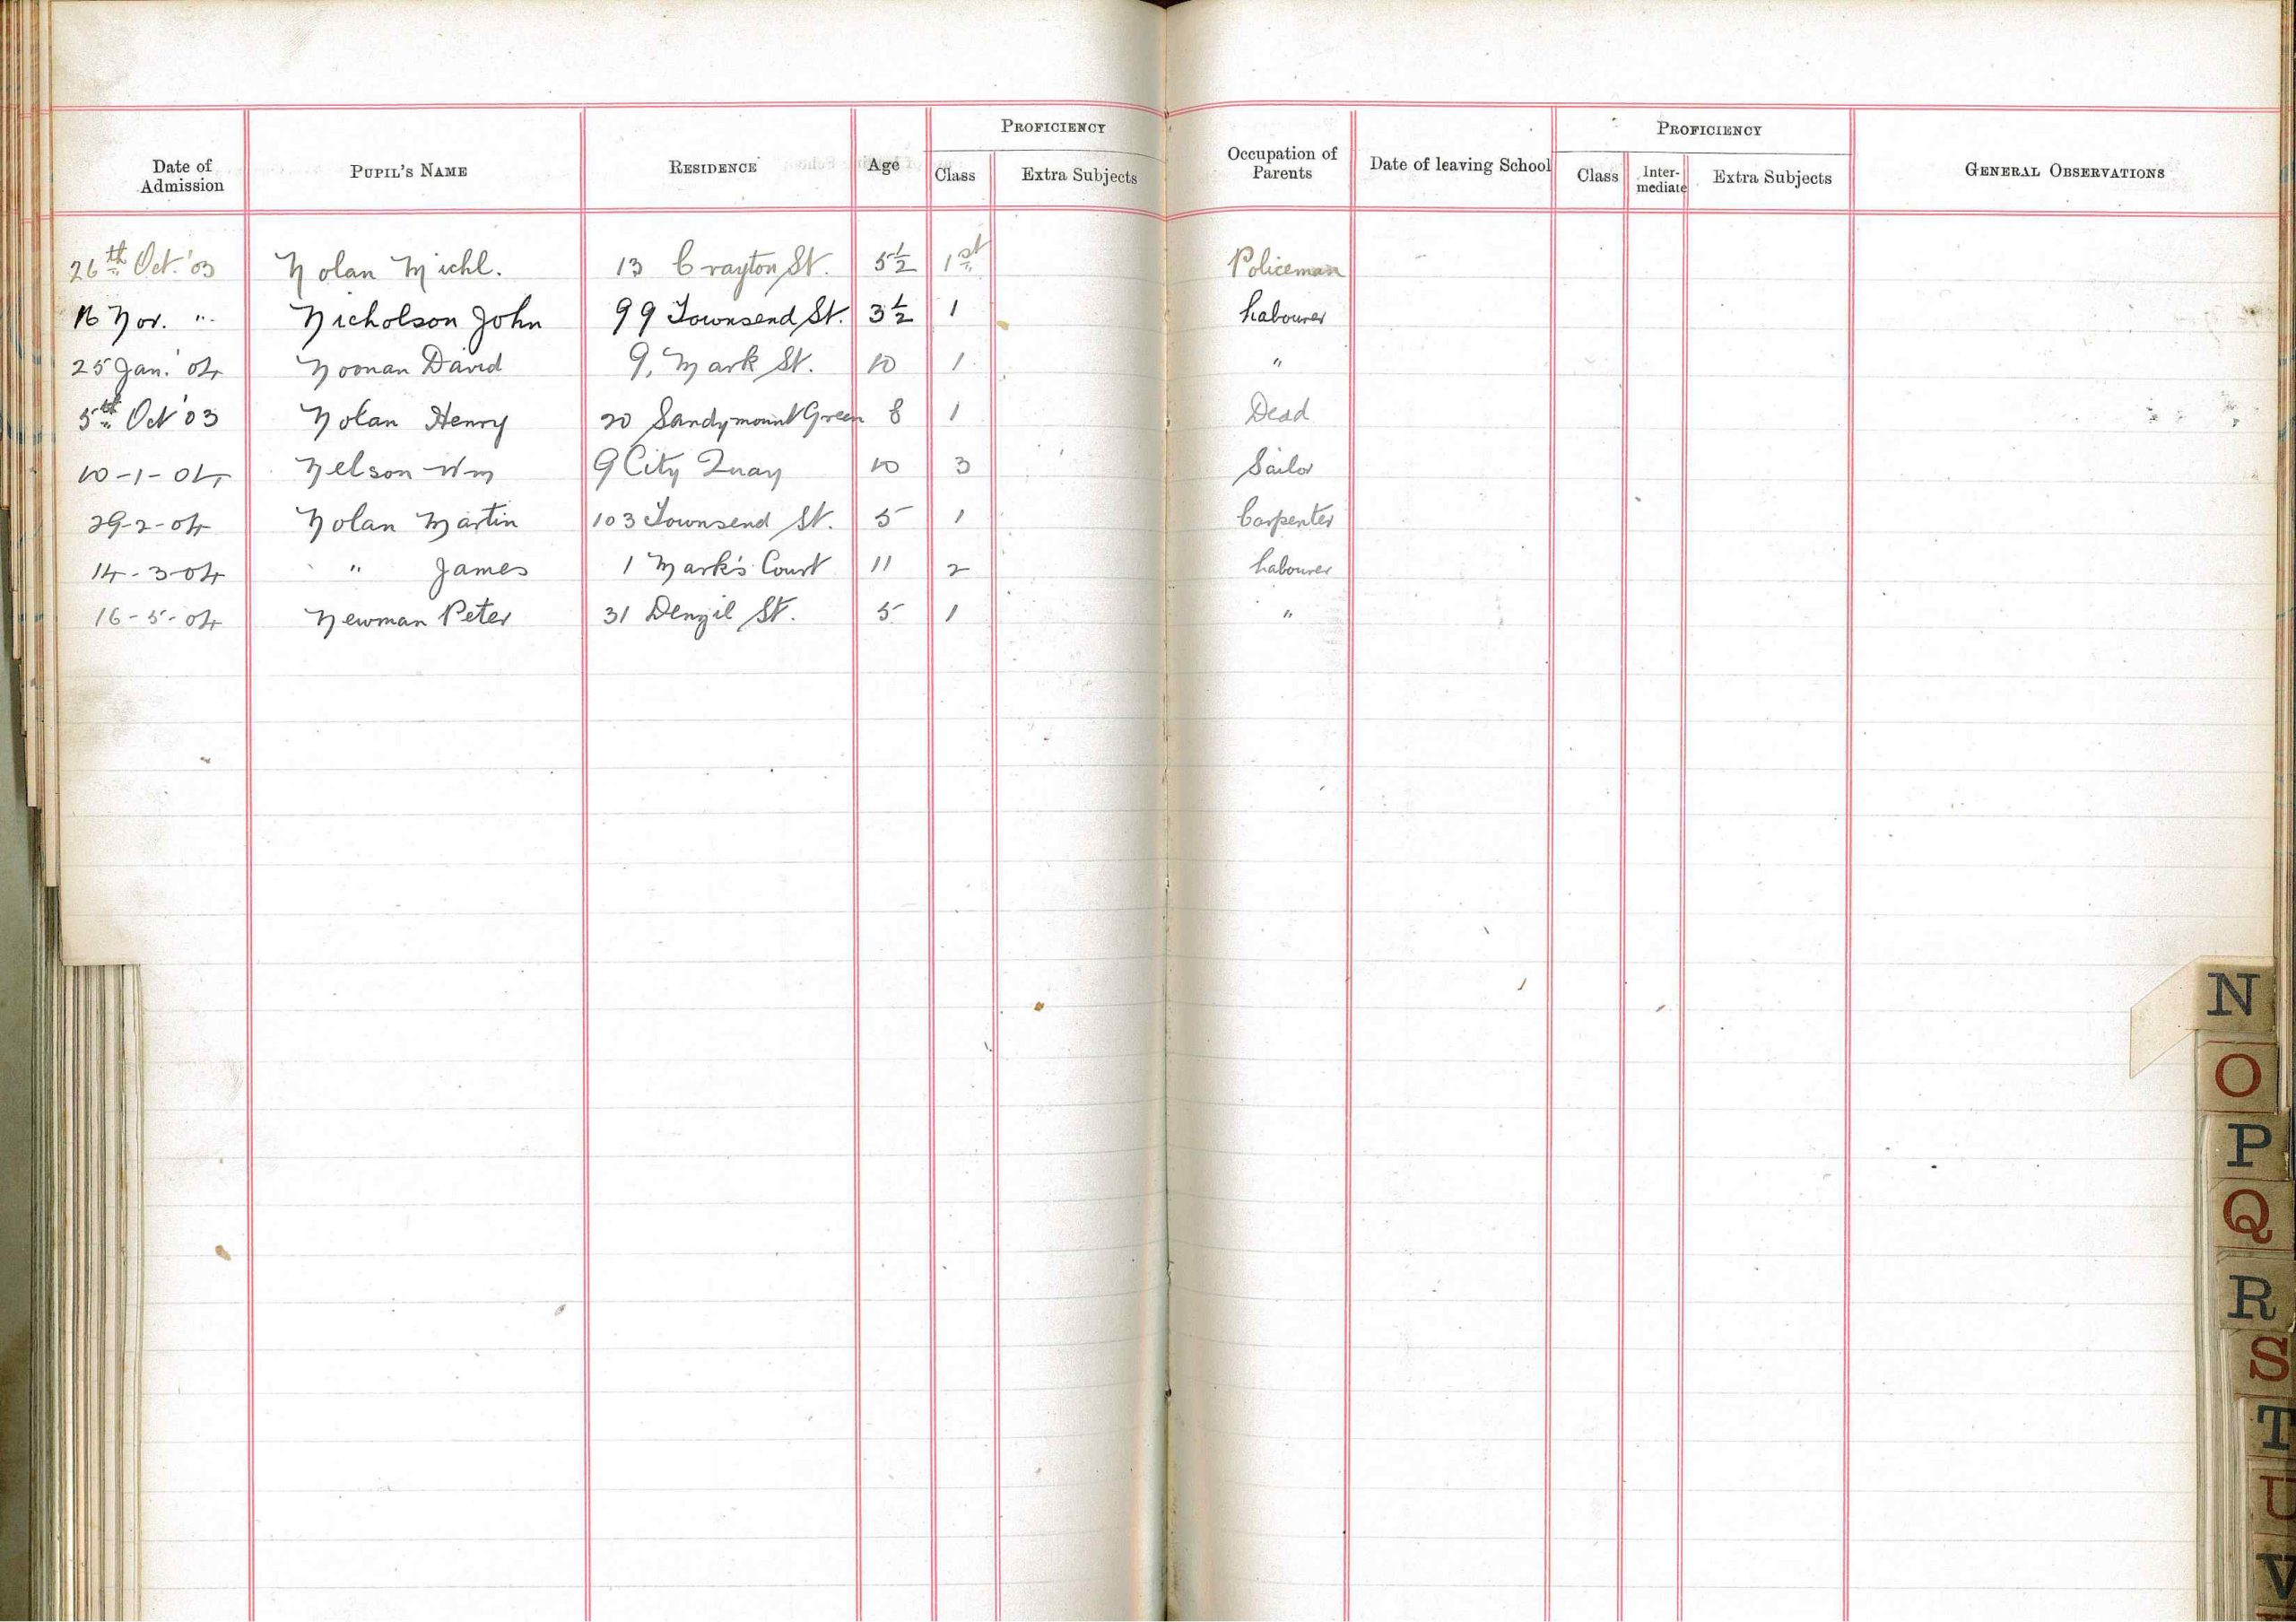 PROFICIENCY PROFICIENCY
Date of Admission PUPIL'S NAME RESIDENCE Age Class Extra Subjects Occupation of Parents Date of leaving School Class Inter-mediate Extra Subjects GENERAL OBSERVATIONS
26th Oct. '03 Nolan Michl. 13 Crayton St. 5½ 1st Policeman
16 Nov. " Nicholson John 99 Townsend St. 3½ 1 Labourer
25 Jan. '04 Noonan David 9, Mark St. 10 1 "
5th Oct '03 Nolan Henry 20 Sandymount Green 8 1 Dead
10-1-04 Nelson Wm 9 City Quay 10 3 Sailor
29-2-04 Nolan Martin 103 Townsend St. 5 1 Carpenter
14-3-04 " James 1 Mark's Court 11 2 Labourer
16-5-04 Newman Peter 31 Denzil St. 5 1 "
N
O
P
Q
R
S
T
U
V